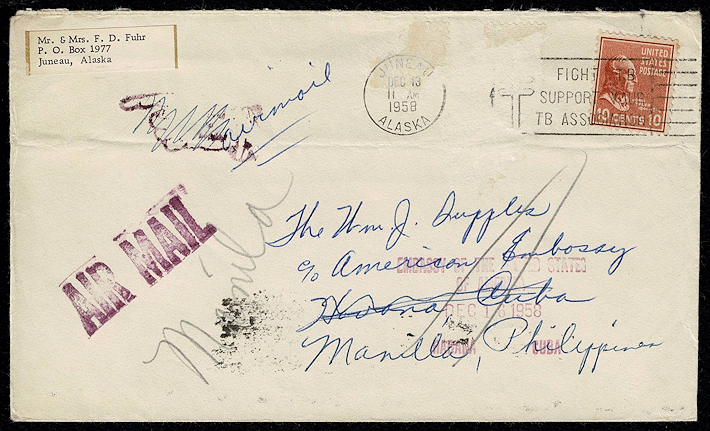 Mr. & Mrs. F. D. Fuhr
P. O. Box 1977
Juneau, Alaska
JUNEAU
DEC 13
11 AM
1958
ALASKA
FIGHT TB
SUPPORT YOUR
TB ASSOCIATION
UNITED
STATES
POSTAGE
10 CENTS 10
airmail
AIR MAIL
Manila
The Wm. J. Supples
c/o American Embassy
Havana, Cuba
Manilla, Philippines
EMBASSY OF THE UNITED STATES
OF
DEC 16 1958
HABANA, CUBA